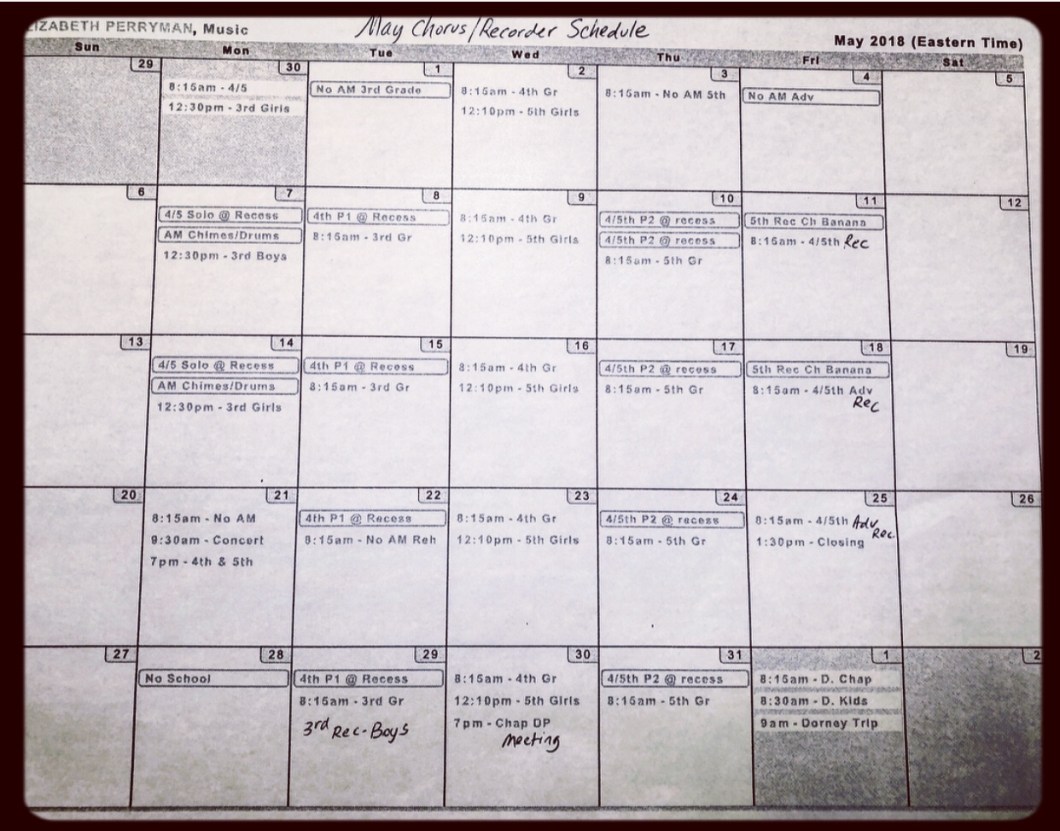 IZABETH PERRYMAN, Music
May Chorus/Recorder Schedule
May 2018 (Eastern Time)
Sun Mon Tue Wed Thu Fri Sat
29
30
8:15am - 4/5
12:30pm - 3rd Girls
1
No AM 3rd Grade
2
8:15am - 4th Gr
12:10pm - 5th Girls
3
8:15am - No AM 5th
4
No AM Adv
5
6
7
4/5 Solo @ Recess
AM Chimes/Drums
12:30pm - 3rd Boys
8
4th P1 @ Recess
8:15am - 3rd Gr
9
8:15am - 4th Gr
12:10pm - 5th Girls
10
4/5th P2 @ recess
4/5th P2 @ recess
8:15am - 5th Gr
11
5th Rec Ch Banana
8:15am - 4/5th Rec
12
13
14
4/5 Solo @ Recess
AM Chimes/Drums
12:30pm - 3rd Girls
15
4th P1 @ Recess
8:15am - 3rd Gr
16
8:15am - 4th Gr
12:10pm - 5th Girls
17
4/5th P2 @ recess
8:15am - 5th Gr
18
5th Rec Ch Banana
8:15am - 4/5th Adv
Rec
19
20
21
8:15am - No AM
9:30am - Concert
7pm - 4th & 5th
22
4th P1 @ Recess
8:15am - No AM Reh
23
8:15am - 4th Gr
12:10pm - 5th Girls
24
4/5th P2 @ recess
8:15am - 5th Gr
25
8:15am - 4/5th Adv
Rec
1:30pm - Closing
26
27
28
No School
29
4th P1 @ Recess
8:15am - 3rd Gr
3rd Rec-Boys
30
8:15am - 4th Gr
12:10pm - 5th Girls
7pm - Chap DP
Meeting
31
4/5th P2 @ recess
8:15am - 5th Gr
1
8:15am - D. Chap
8:30am - D. Kids
9am - Dorney Trip
2